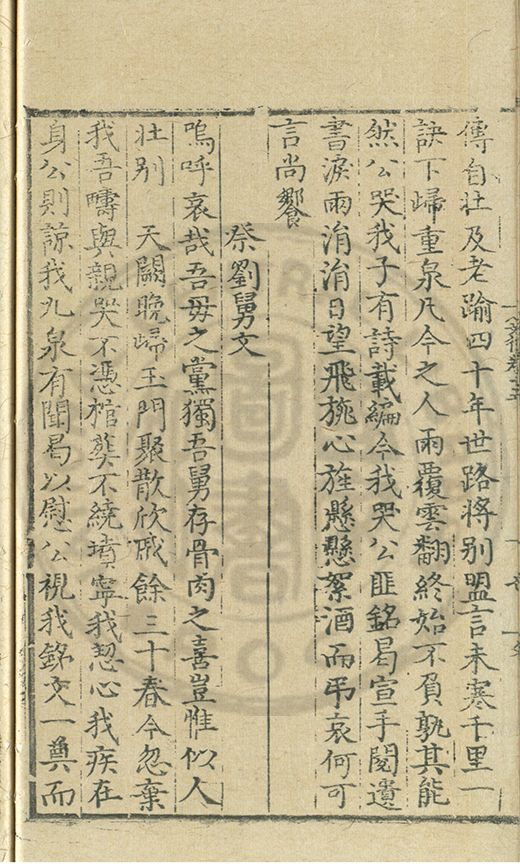 傳自壯及老踰四十年世路將别盟言未寒千里一
訣下歸重泉凡今之人雨覆雲翻終始不負孰其能
然公哭我子有詩載編今我哭公匪銘曷宣手閱遺
書淚雨涓涓日望飛旐心旌懸懸絮酒而吊哀何可
言尚饗
祭劉舅文
嗚呼哀哉吾母之黨獨吾舅存骨肉之喜豈惟似人
壯别 天闕晚歸玉門聚散欣戚餘三十春今忽棄
我吾疇與親哭不憑棺葬不繞墳寧我恝心我疾在
身公則諒我九泉有聞曷以慰公視我銘文一奠而